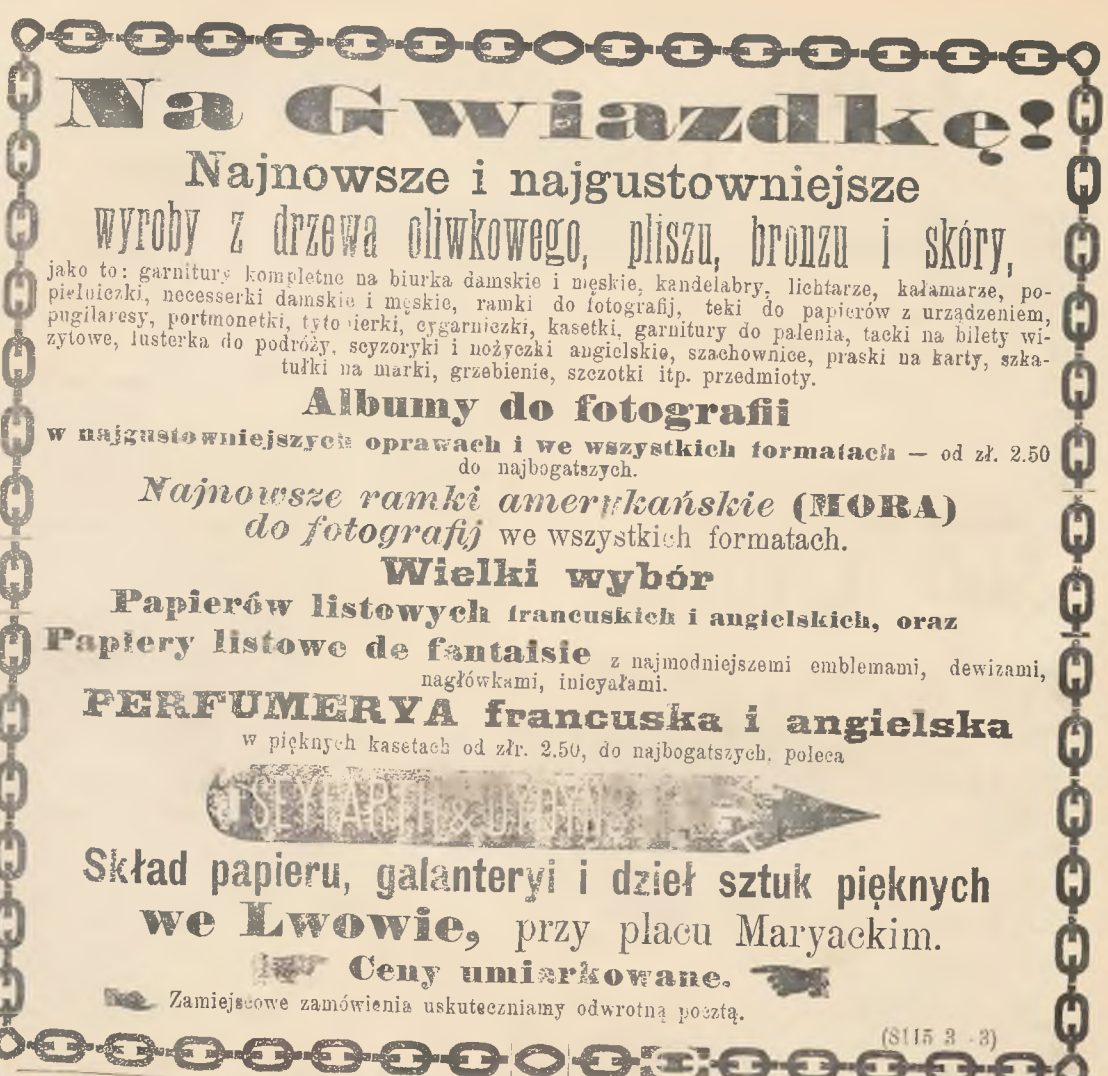 Na Gwiazdkę!
Najnowsze i najgustowniejsze
wyroby z drzewa oliwkowego, pliszu, bronzu i skóry,
jako to: garnitury kompletne na biurka damskie i męskie, kandelabry, lichtarze, kałamarze, po-
pielniczki, necesserki damskie i męskie, ramki do fotografij, teki do papierów z urządzeniem,
pugilaresy, portmonetki, tytonierki, cygarniczki, kasetki, garnitury do palenia, tacki na bilety wi-
zytowe, lusterka do podróży, scyzoryki i nożyczki angielskie, szachownice, praski na karty, szka-
tułki na marki, grzebienie, szczotki itp. przedmioty.
Albumy do fotografii
w najgustowniejszych oprawach i we wszystkich formatach — od zł. 2.50
do najbogatszych.
Najnowsze ramki amerykańskie (MORA)
do fotografij we wszystkich formatach.
Wielki wybór
Papierów listowych francuskich i angielskich, oraz
Papiery listowe de fantaisie z najmodniejszemi emblemami, dewizami,
nagłówkami, inicyałami.
PERFUMERYA francuska i angielska
w pięknych kasetach od złr. 2.50, do najbogatszych, poleca
SEYFARTH &
Skład papieru, galanteryi i dzieł sztuk pięknych
we Lwowie, przy placu Maryackim.
Ceny umiarkowane.
Zamiejscowe zamówienia uskuteczniamy odwrotną pocztą.
(8115 3-3)